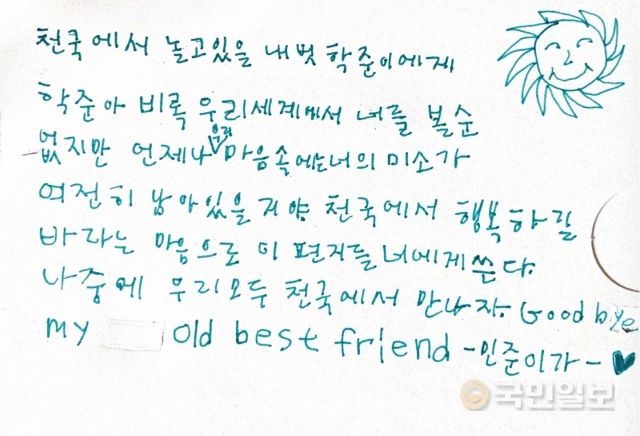 천국에서 놀고있을 내벗 학준이에게
학준아 비록 우리세계에서 너를 볼순
없지만 언제나 우리 마음속에는너의 미소가
여전히 남아있을거야 천국에서 행복하길
바라는 마음으로 이 편지를 너에게쓴다.
나중에 우리모두 천국에서 만나자. Good bye
my old best friend -인준이가- ♥
국민일보